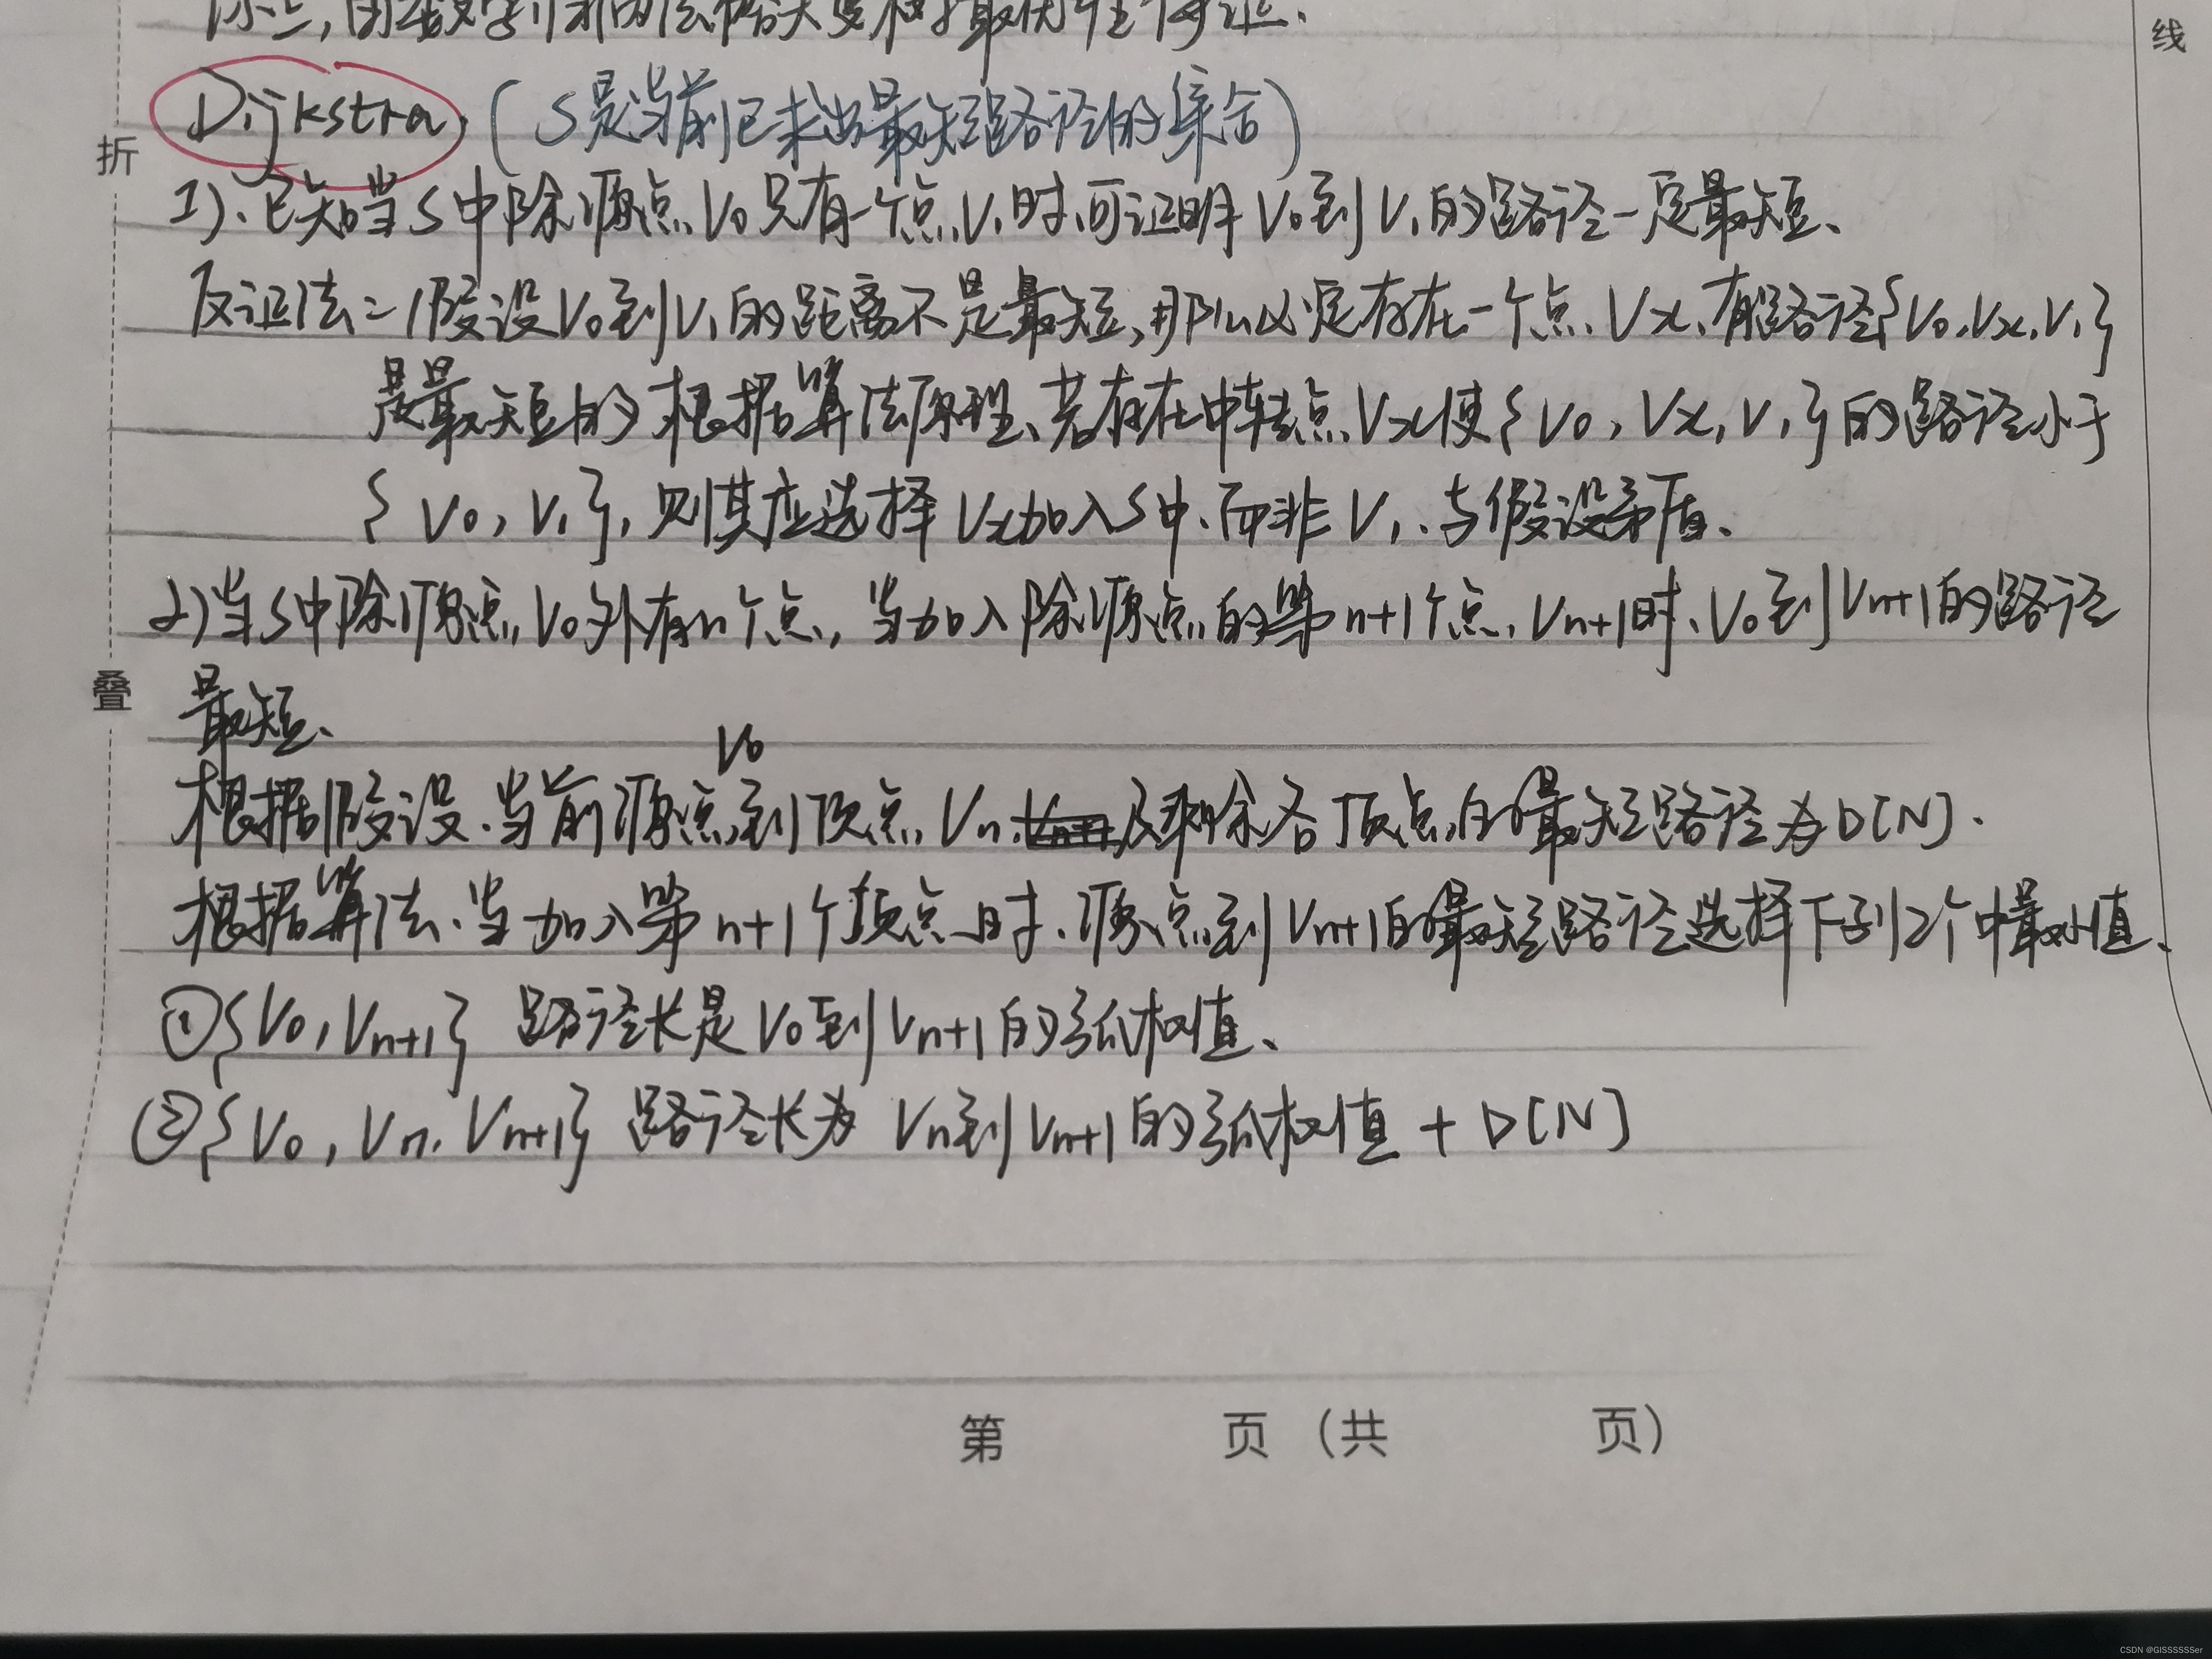 综上,由数学归纳法
最优性得证.
线
Dijkstra. (S是当前已求出最短路径的集合)
折
1)、已知当S中除源点V0只有一个点V1时,可证明V0到V1的路径一定最短、
反证法:假设V0到V1的距离不是最短,那么必定存在一个点Vx、有路径{V0,Vx,V1}
是最短的 根据算法原理、若存在中转点Vx使{V0,Vx,V1}的路径小于
{V0,V1},则其应选择Vx加入S中、而非V1、与假设矛盾、
2)当S中除源点V0外有n个点,当加入除源点的第n+1个点Vn+1时、V0到Vn+1的路径
叠
最短、
V0
根据假设、当前源点到顶点Vn、及剩余各顶点的最短路径为D[N].
根据算法、当加入第n+1个顶点时、源点到Vn+1的最短路径选择下列2个中最小值、
①{V0,Vn+1} 路径长是V0到Vn+1的弧权值、
②{V0,Vn,Vn+1} 路径长为 Vn到Vn+1的弧权值 + D[N]
第 页(共 页)
CSDN @GISSSSSSer